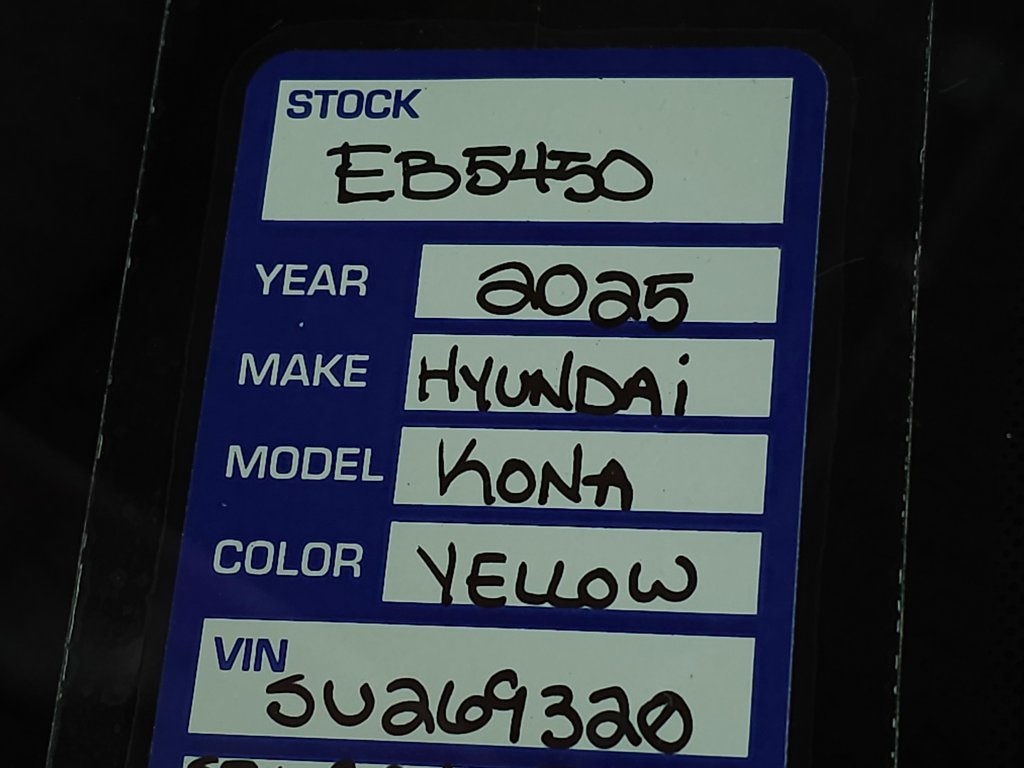 STOCK
EB5450
YEAR 2025
MAKE HYUNDAi
MODEL KONA
COLOR YELLOW
VIN
SU269320